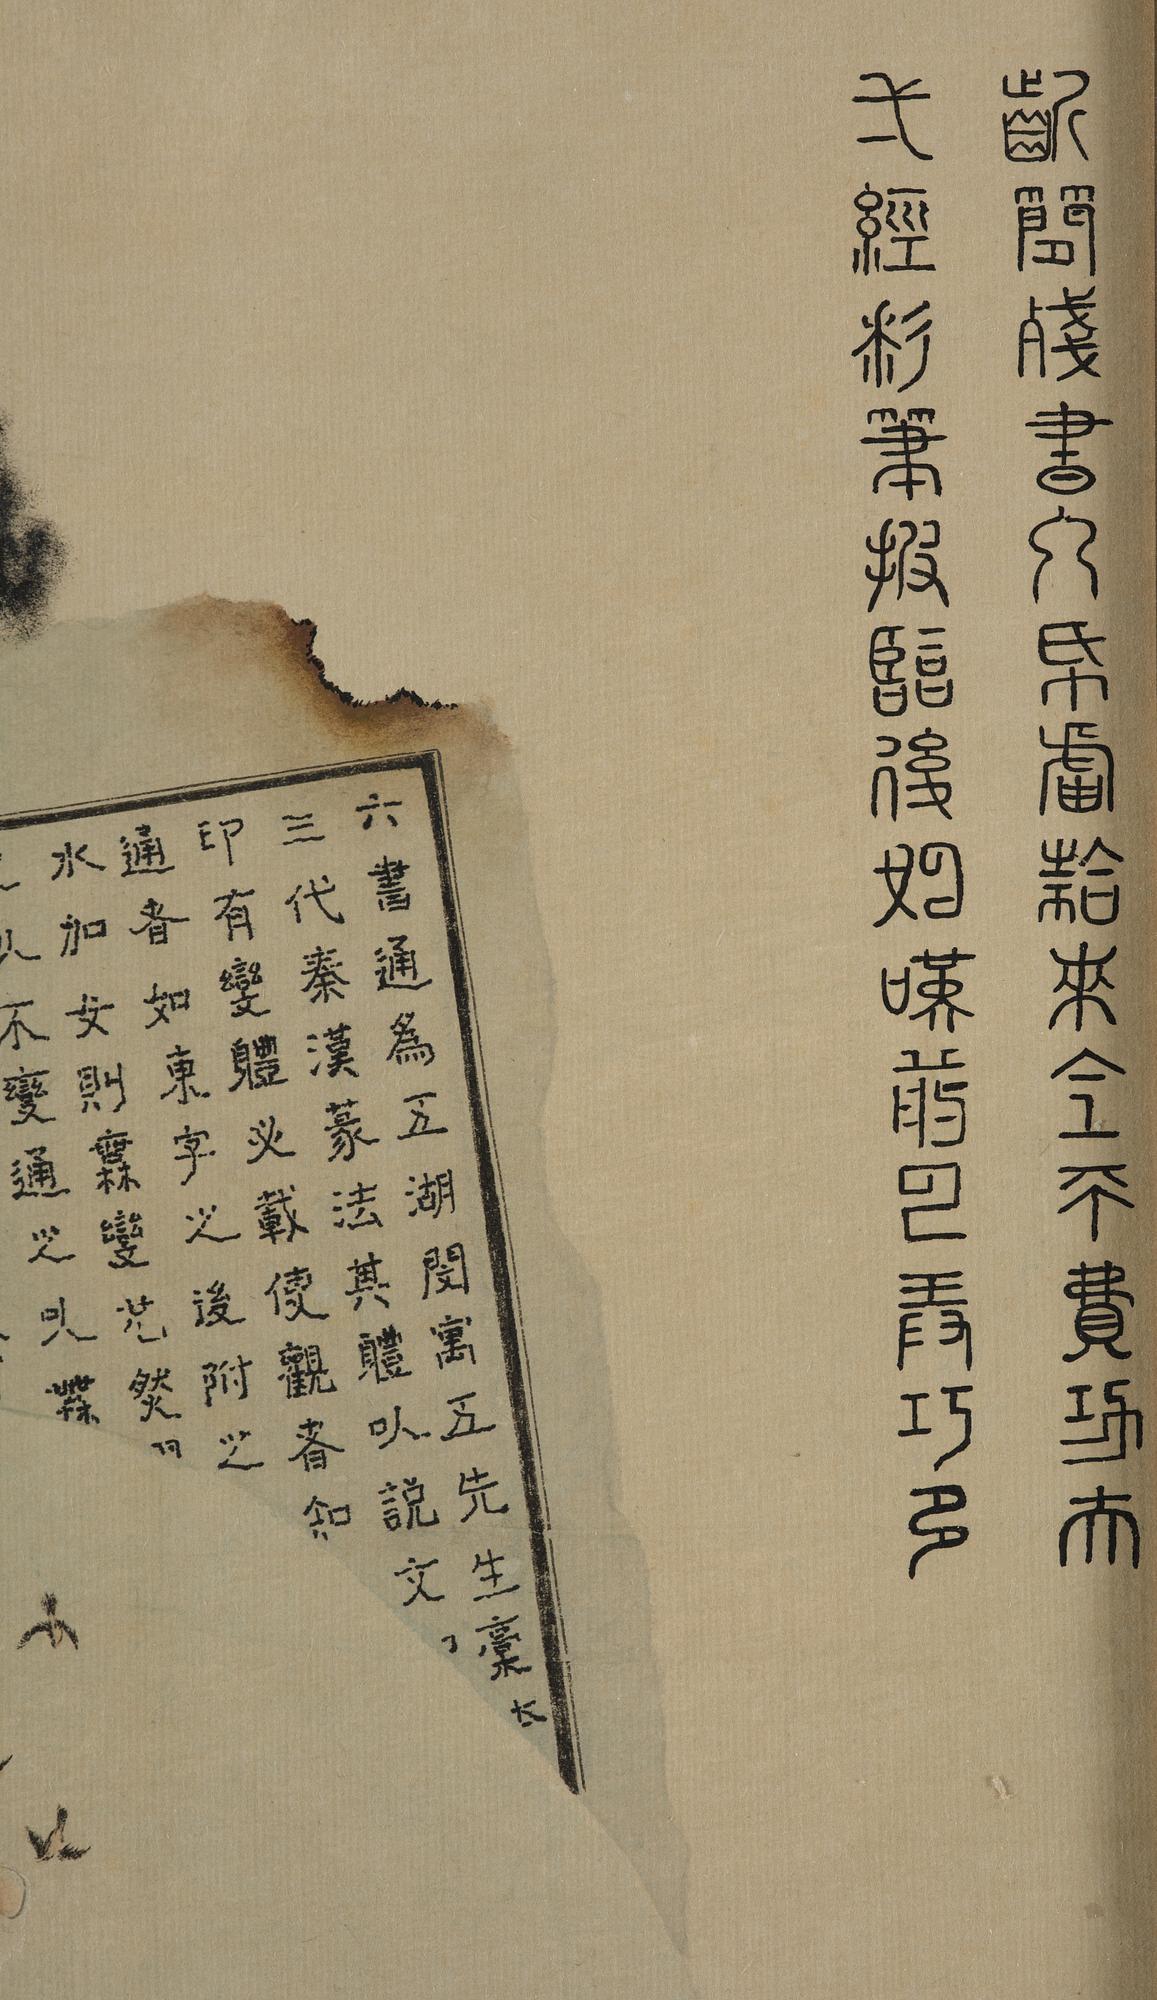 簡殘書帋拾來全不費功夫
經彩筆臨後如嘆前已巧
六書通為五湖閔寓五先生稾
三代秦漢篆法其體以說文
印有變體必載使觀者知
通者如東字之後附之
水加女則變然
以不變通之以